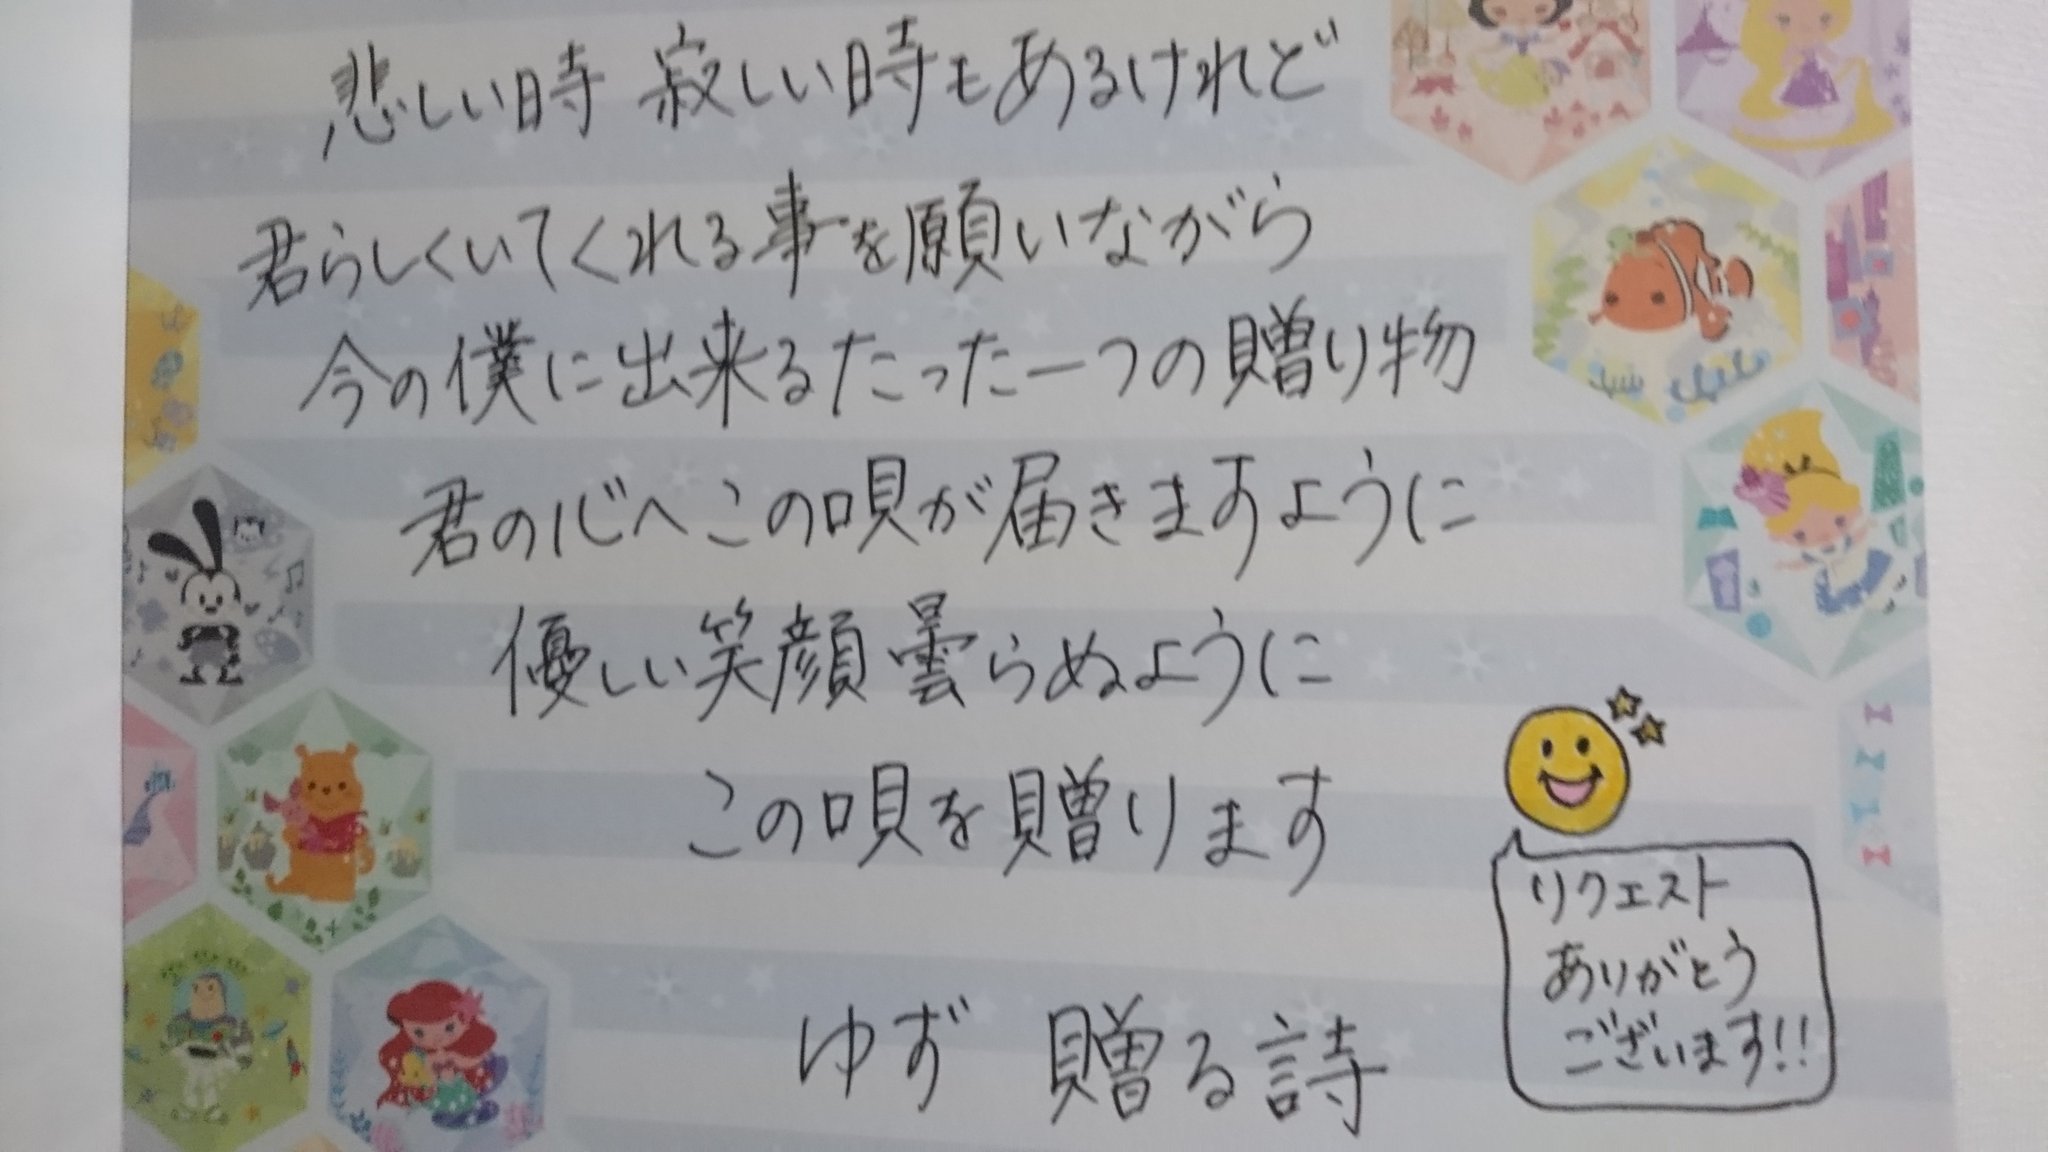 悲しい時 寂しい時もあるけれど
君らしくいてくれる事を願いながら
今の僕に出来るたった一つの贈り物
君の心へこの唄が届きますように
優しい笑顔曇らぬように
この唄を贈ります
ゆず 贈る詩
リクエスト
ありがとう
ございます!!